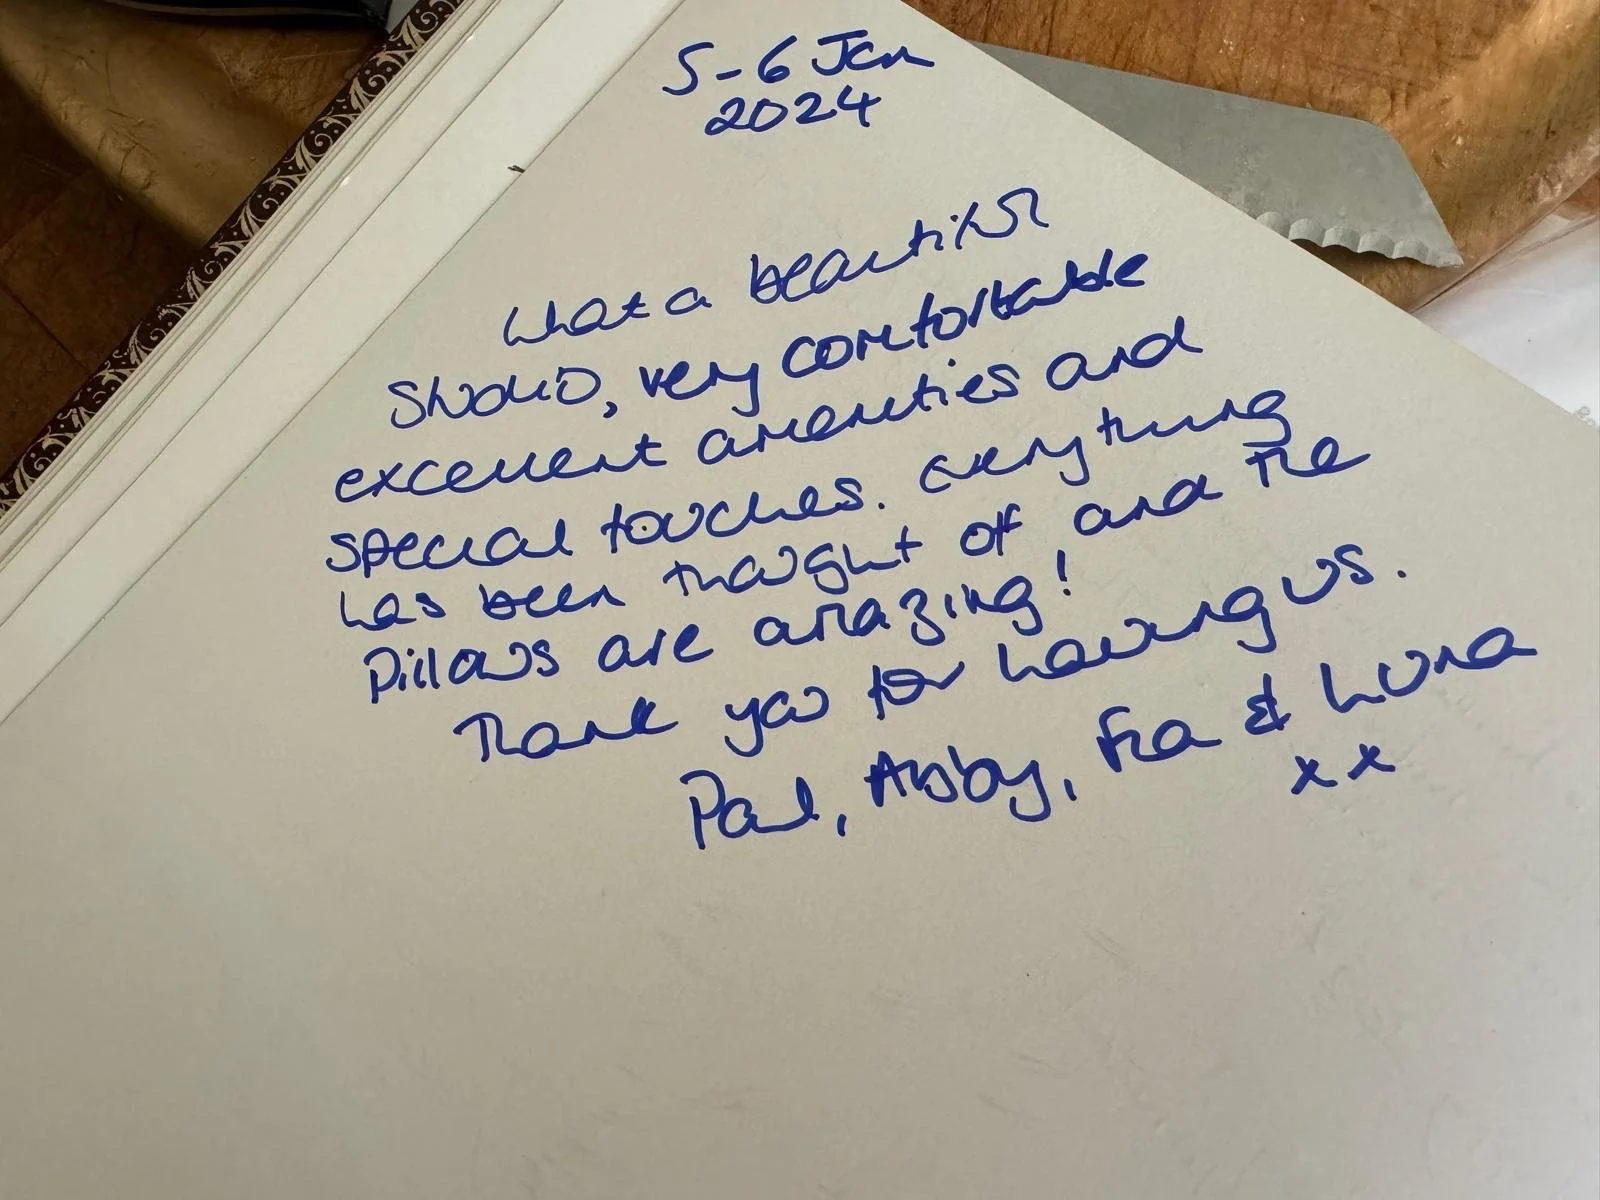 5-6 Jan
2024
What a beautiful
studio, very comfortable
excellent amenities and
special touches. Everything
has been thought of and the
pillows are amazing!
Thank you for having us.
Paul, Ansby, Fra & Luna
xx